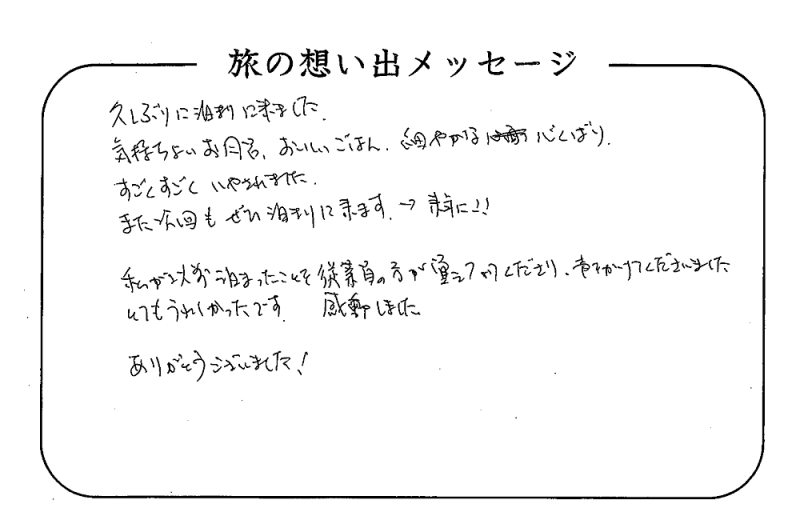 旅の想い出メッセージ
久しぶりに泊まりに来ました。
気持ちよいお月召、おいしいごはん、細やかな心くばり。
すごくすごくいやされました。
また次回もぜひ泊まりに来ます。→ 来年に!!
私が以前泊まったことを従業員の方が覚えててくださり、声をかけてくださいました
とてもうれしかったです。 感動しました
ありがとうございました!